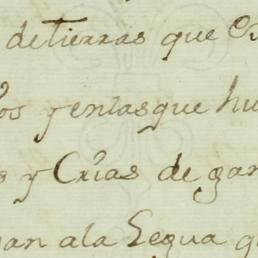 de tierras que
os y enlasque hu
s y Crias de gan
an ala Legua q